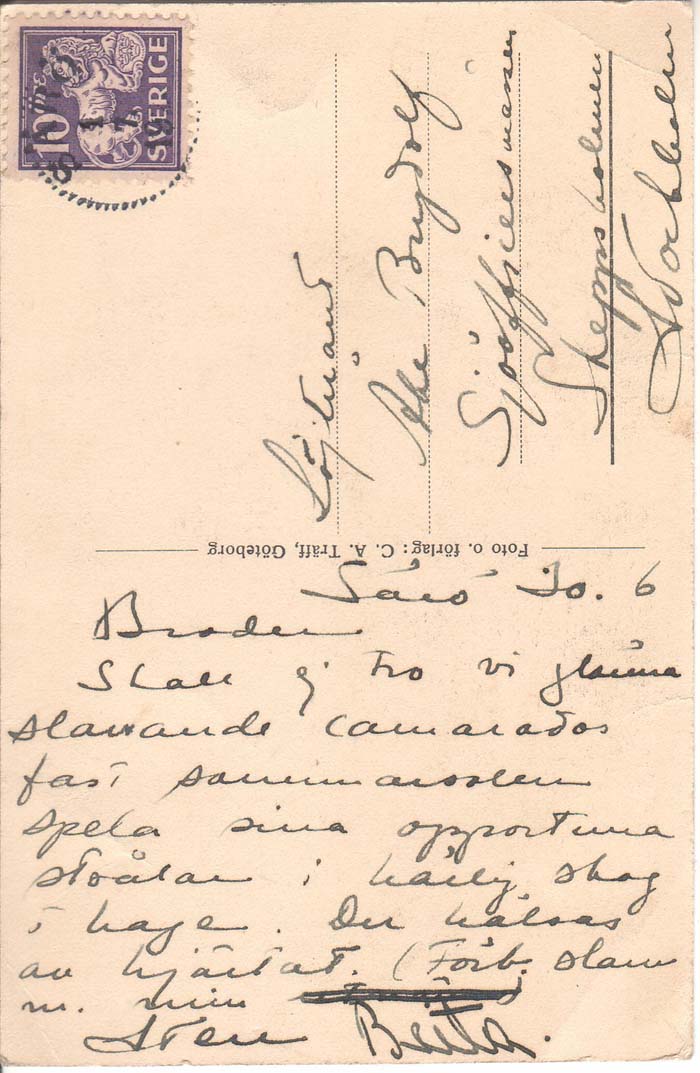 10 ÖRE
SVERIGE
SÄRÖ
1
7
Löjtnant
Åke Brydolf
Sjöofficersmässen
Skeppsholmen
Stockholm
Foto o. förlag: C. A. Träff, Göteborg
Särö 30. 6
Broder
Skall ej tro vi glömma
slavande camarados
fast sommarsolen
spela sina opportuna
strålar i härlig skog
i hage. Du hälsas
av hjärtat. (Förb. slam
m. min
Sten